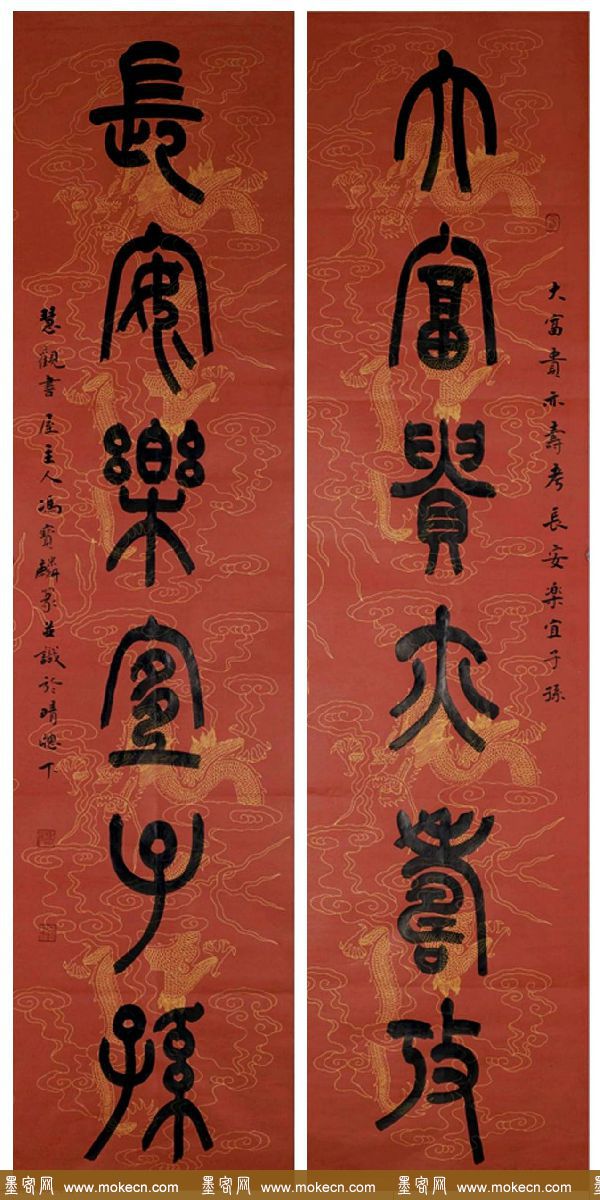 大富貴亦壽考
大富貴亦壽考長安楽宜子孫
長安樂宜子孫
慧觀書屋主人馮寶麟篆並識於晴窗下
墨客网 www.mokecn.com 墨客网 www.mokecn.com 墨客网 www.mokecn.com 墨客网 www.mokecn.com